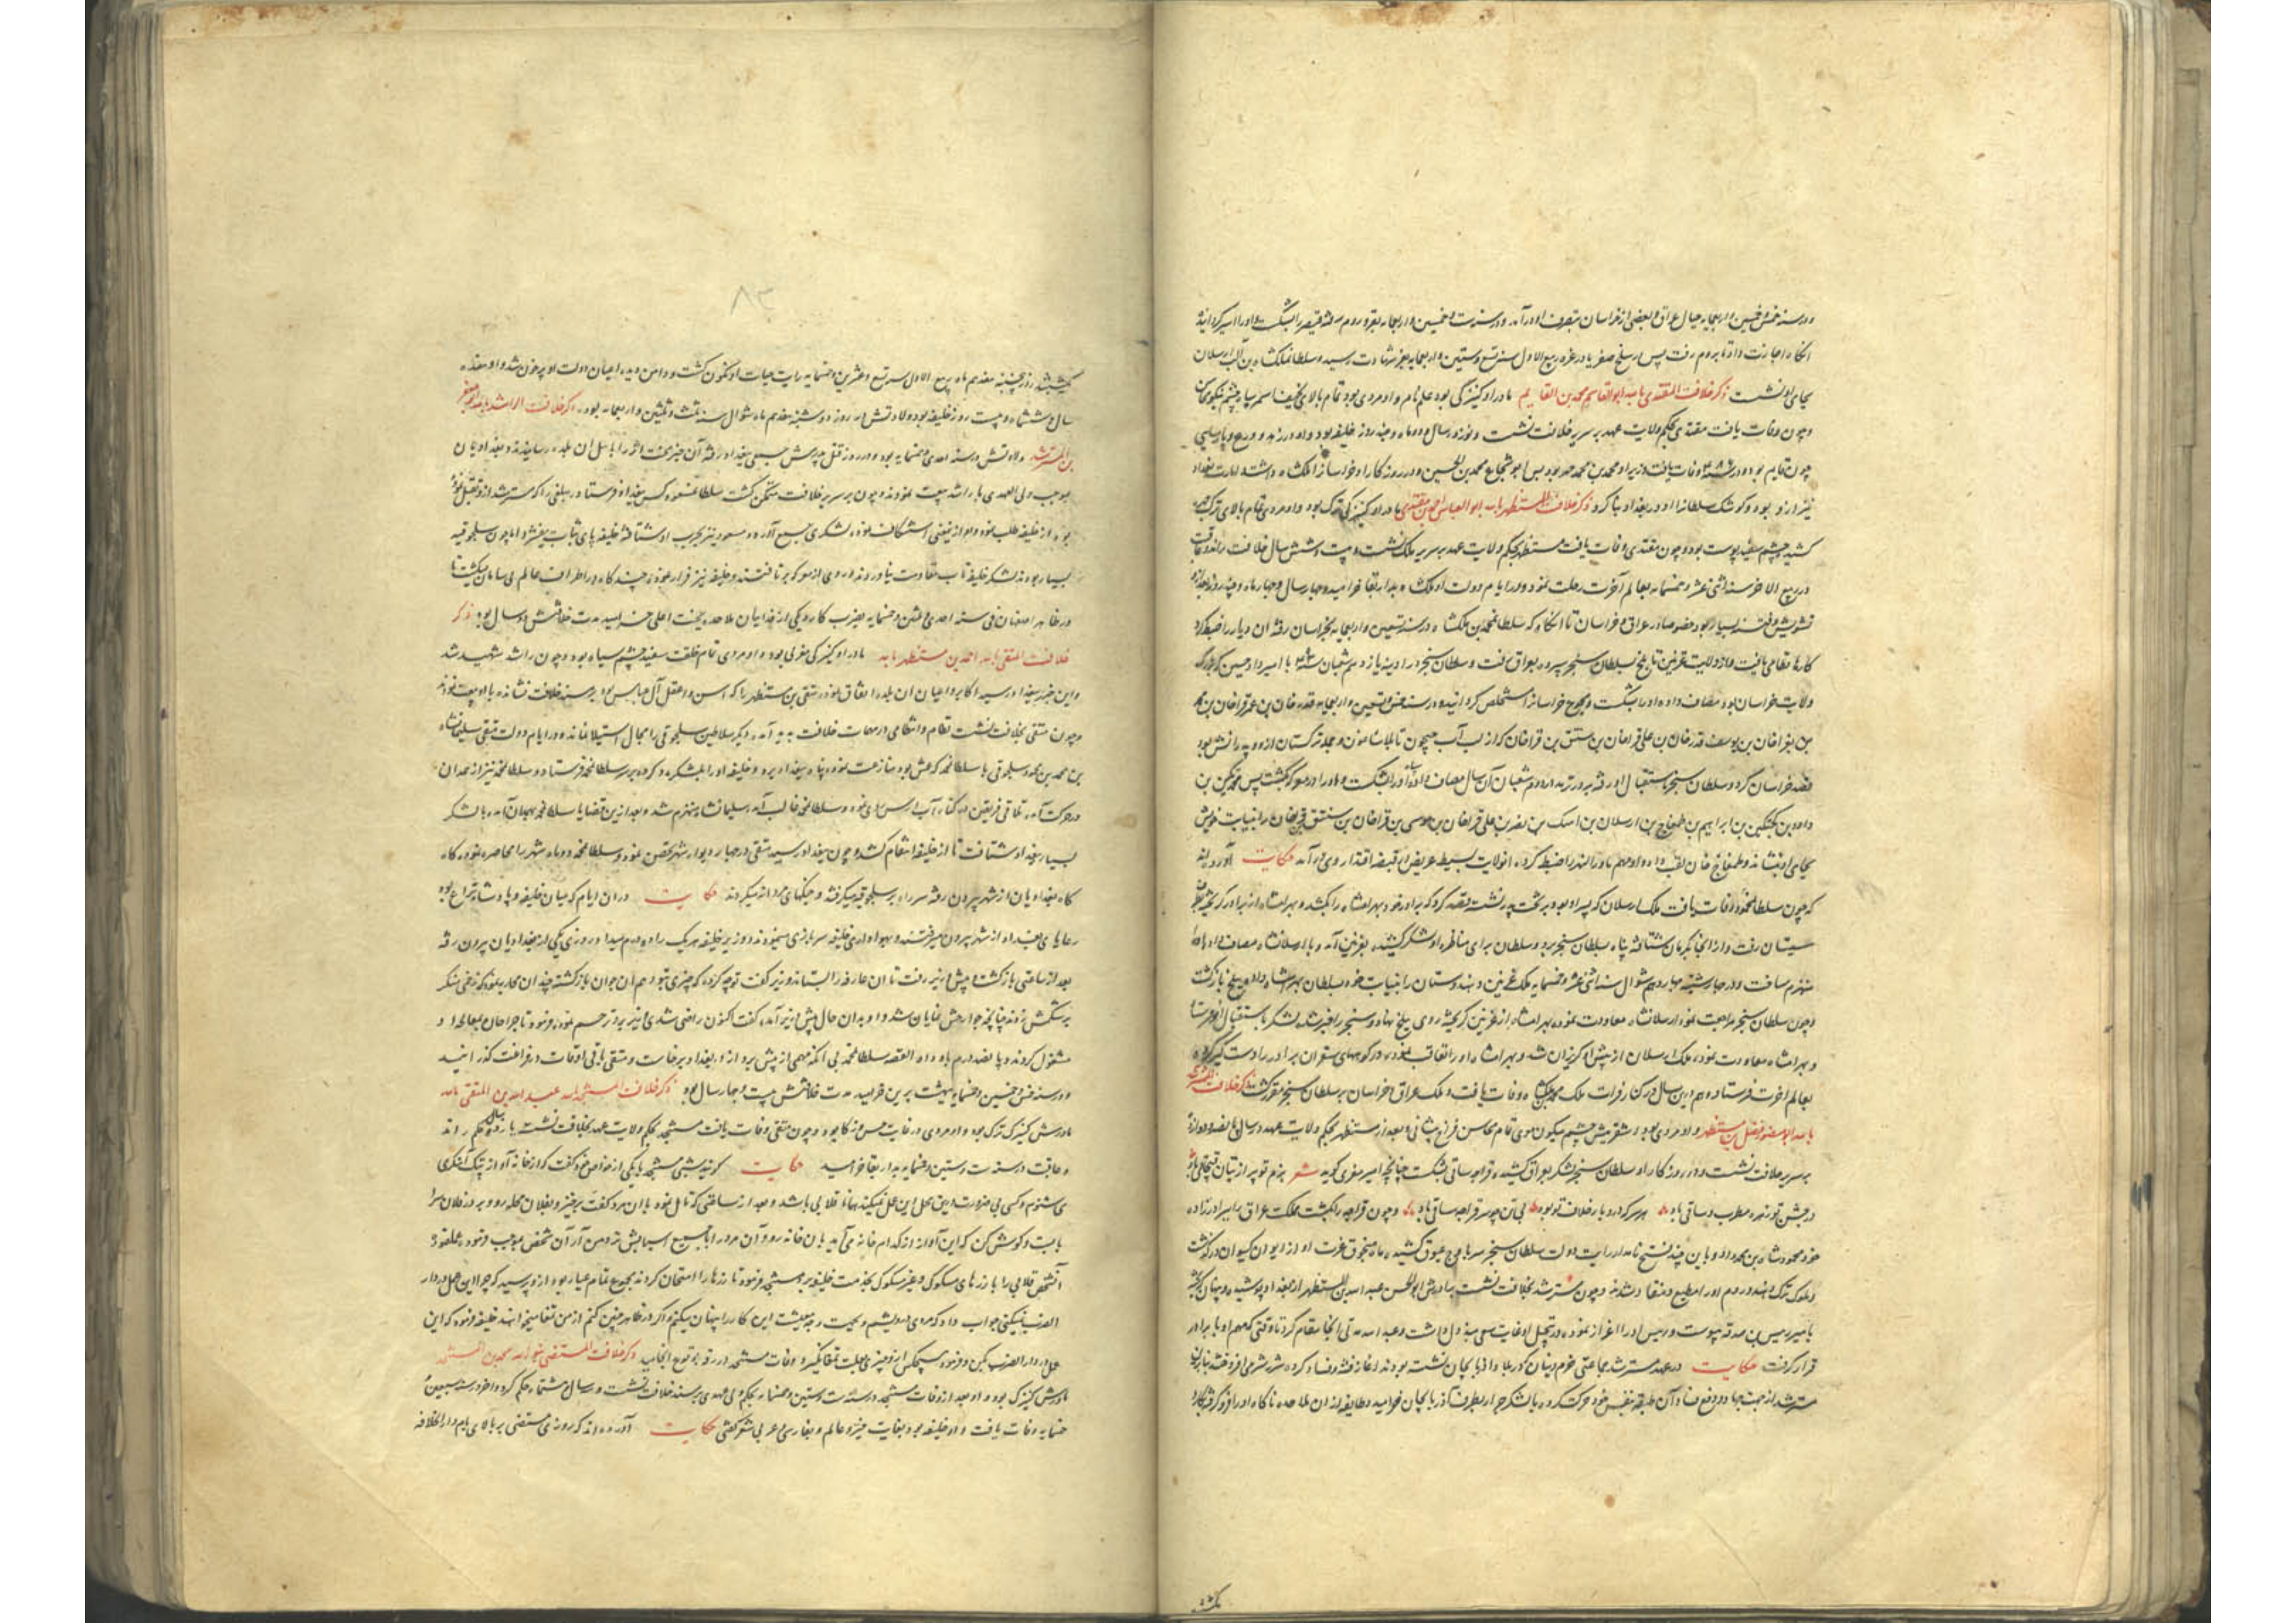 ودر سنه خمس و خمسین و اربعمایه جبال عراق و بعضی از خراسان بتصرف او درآمد و در سنه ست و خمسین و اربعمایه بغزو روم رفته قیصر را بشکست و او را اسیر گردانید
انکاه اجازت داد تا بروم رفت پس در سلخ صفر یا در غره ربیع الاول سنه تسع و ستین و اربعمایه بعز شهادت رسید و سلطان ملکشاه بن الب ارسلان
بجای او نشست ذکر خلافت المقتدی بالله ابو القاسم محمد بن القایم مادر او کنیزکی بود علم نام و او مردی بود تمام بالای نحیف اسمر سیاه چشم نیکو محاسن
و چون وفات یافت مقتدی بحکم ولایت عهد بر سریر خلافت نشست و نوزده سال و دو ماه و چند روز خلیفه بود و او در زهد و ورع و پارسایی
چون قایم بود و در وفات یافت وزیر او محمد بن محمد جهیر بود پس ابو شجاع محمد بن الحسین و در روزگار او خراسان از ملکشاه داشت و امارت بغداد
نیز از و بود و کوشک سلطان را او در بغداد بنا کرد ذکر خلافت المستظهر بالله ابو العباس احمد بن مقتدی مادر او کنیزکی ترک بود و او مردی تمام بالای ترک چهره
کشیده چشم سفید پوست بود و چون مقتدی وفات یافت مستظهر بحکم ولایت عهد بر سریر ملک نشست و بیست و شش سال خلافت راند و عاقبت
در ربیع الاخر سنه اثنی عشر و خمسمایه بعالم آخرت رحلت نمود و در ایام دولت او ملکشاه بدار بقا خرامید و چهار سال و چهار ماه و چند روز بعد از او
تشویش و فتنه بسیار بود خصوصا در عراق و خراسان تا انکاه که سلطان محمد بن ملکشاه در سنه تسعین و اربعمایه بخراسان رفته ان دیار را ضبط کرد
کارها نظامی یافت و از ولایت غزنین تا بلخ بسلطان سنجر سپرده بعراق شتافت و سلطان سنجر در اوینه یازدهم شعبان با امیرداد حبشی که بزرگ
ولایت خراسان بود مصاف داده او را بشکست و مجموع خراسان را مستخلص گردانید و در سنه خمس و تسعین و اربعمایه قدرخان بن عمر قراخان بن محمد
بن بغراخان بن یوسف قدرخان بن علی قراخان بن ستق بن قراخان که از لب آب جیحون تا بلاساغون و جمله ترکستان از و و پدرانش بود
قصد خراسان کرد و سلطان سنجر باستقبال او رفته بدر ترمذ در دوم شعبان آن سال مصاف داد او را بشکست و او را در معرکه بکشت پس محمد تکین بن
داود بن کجتکین بن ابراهیم بن طمغاج بن ارسلان بن اسک بن نصر بن علی قراخان بن موسی بن قراخان بن ستق قراخان را بنیابت خویش
بجای او بنشاند و طمغاج خان لقب داد و او مهم ماوراءالنهر را ضبط کرده ان ولایت بسیط عریض در قبضه اقتدار وی درآمد حکایت آورده اند
که چون سلطان محمود وفات یافت ملک ارسلان که پسر او بود بر تخت پدر نشست قصد کرد که برادر خود بهرامشاه را بکشد و بهرامشاه از برادر گریخته بطرف
سیستان رفت و از انجا بکرمان شتافته پناه بسلطان سنجر برد و سلطان برای مناظره او لشکر کشیده بغزنین آمد و با ارسلانشاه مصاف داد
منهزم ساخت و در چهارشنبه چهاردهم شوال سنه اثنی عشر و خمسمایه ملک غزنین و هندوستان را بنیابت خود بسلطان بهرامشاه داد و ببلخ بازگشت
و چون سلطان سنجر مراجعت نمود ارسلانشاه معاودت نموده بهرامشاه از غزنین گریخته روی ببلخ نهاد و سنجر را خبر شد لشکر باستقبال او فرستاد
و بهرامشاه معاودت نمود ملک ارسلان از پیش او گریزان شد و بهرامشاه او را تعاقب نموده در کوههای سقران برادر را دستگیر کرده
بعالم اخرت فرستاد و هم درین سال در کن رفرات ملک محمد ملکشاه وفات یافت و ملک عراق و خراسان بر سلطان سنجر مقرر گشت ذکر خلافت المسترشد
بالله ابو منصور فضل بن مستظهر و او مردی بود اشقر میش چشم میگون موی تمام محاسن فراخ پیشانی و بعد از مستظهر بحکم ولایت عهد در سال پانصد و دوازده
بر سریر خلافت نشست و در روزگار او سلطان سنجر لشکر بعراق کشیده قراجه ساقی بشکست چنانچه امیر معزی گوید شعر بزم تو پر از بتان قبچاقی باد
در جشن تو زهره مطرب و ساقی باد هر سر که درو بار خلافت تو بود بی تن چو سر قراجه ساقی باد و چون قراجه را بکشت مملکت عراق را ببرادرزاده
خود محمودشاه بن محمد داد و با این چند فتح نامدار رایت دولت سلطان سنجر سر باوج عیوق کشید و ماه منجوق عزت او از ایوان کیوان درگذشت
و ملوک ترک و هند و روم او را مطیع و منقاد شدند و چون مسترشد بخلافت نشست برادرش ابو الحسن عبد الله بن المستظهر از بغداد پوشیده و پنهان بگریخت
بامیر دبیس بن صدقه پیوست و دبیس او را اعزاز نموده در تبجیل او غایت سعی مبذول داشت و عبد الله مدتی انجا مقام کرد تا وقتی که مهم او با برادر
قرار گرفت حکایت در عهد مسترشد جماعتی خرم دینان که در بلاد اذربایجان نشست بودند اغاز فتنه و فساد کرده شر شرمی افروختند بنابران
مسترشد از جهت جهاد و دفع فساد آن طبقه بنفس خود حرکت کرده با لشکر جرار بطرف آذربایجان خرامید و طایفه از ان ملاحده ناگاه او را فرو گرفته کارد
بکشتند
۸۳
بکشتند روز پنجشنبه هفدهم ماه ربیع الاول سنه تسع و عشرین و خمسمایه رایت حیات او نگون گشت و دامن دیده اعیان دولت او پر خون شد و او هفده
سال و ششماه و بیست روز خلیفه بود ولادتش در روز دوشنبه هفدهم ماه شوال سنه ثلث و ثمنین و اربعمایه بود ذکر خلافت الراشد بالله ابو جعفر
بن المسترشد ولادتش در سنه احدی و خمسمایه بود و در روز قتل پدرش جمعی ببغداد رفته آن خبر محنت اثر را باهل ان بلده رسانیدند و بغدادیان
بموجب ولی العهدی با راشد بیعت نمودند و چون بر سریر خلافت متمکن گشت سلطان مسعود کس ببغداد فرستاد و مبلغی را که مسترشد از و تقبل نموده
بود از خلیفه طلب نمود و او از نیمعنی استنکاف نموده لشکری جمع آورد و مسعود نیز بحرب او شتافته خلیفه پای ثبات بیفشرد اما چون سلجوقیه
بسیار بودند لشکر خلیفه تاب مقاومت نیاوردند و روی از معرکه برتافتند و خلیفه نیز فرار نموده چند گاه در اطراف عالم بی سامان میگشت تا
در ظاهر اصفهان فی سنه احدی و ثلثین و خمسمایه بضرب کارد یکی از فداییان ملاحده بجنت اعلی خرامید مدت خلافتش دو سال بود ذکر
خلافت المتقی بالله احمد بن مستظهر بالله مادر او کنیزکی مغربی بود و او مردی تمام خلقت سفید چشم سیاه بود و چون راشد شهید شد
و این خبر ببغداد رسید اکابر و اعیان ان بلده اتفاق نموده متقی بن مستظهر را که اسن و اعقل آل عباس بود بر مسند خلافت نشانده با او بیعت نمودند
و چون متقی بخلافت نشست نظام و انتظامی در مهمات خلافت پدید آمد و دیگر سلاطین سلجوقی را مجال استیلا نماند و در ایام دولت متقی سلیمانشاه
بن محمد بن محمود سلجوقی با سلطان محمد که عمش بود منازعت نموده پناه ببغداد برد و خلیفه او را بلشکر مدد کرده بر سر سلطان محمد فرستاد و سلطان محمد نیز از همدان
در حرکت آمد و تلاقی فریقین در کنار آب ارس روی نمود و سلطان محمد غالب آمد سلیمانشاه منهزم شد و بعد ازین قضایا سلطان محمد بهمدان آمد و با لشکر
بسیار ببغداد شتافت تا از خلیفه انتقام کشد و چون ببغداد رسید متقی در چهار دیوار شهر متحصن نمود و سلطان محمد دو ماه شهر را محاصره نمود و گاه
گاه بغدادیان از شهر بیرون رفته سر راه بر سلجوقیه میگرفتند و جنگهای مردانه میکردند حکایت دران ایام که میان خلیفه و پادشاه نزاع بود
رعایای بغداد از شهر بیرون میرفتند و بهواداری خلیفه سربازی مینمودند و وزیر خلیفه هر یک را ده درم میداد روزی یکی از بغدادیان بیرون رفته
بعد از ساعتی بازگشت و پیش وزیر رفت تا ان عارفه را بستاند وزیر گفت تو چه کرده که چیزی بتو دهم ان جوان بازگشته چندان محاربه نمود که زخمی منکر
بر شکمش زدند چنانچه جوارحش نمایان شد و او بدان حال پیش وزیر آمده گفت اکنون راضی شدی وزیر برو ترحم نموده فرمود تا جراحان بمعالجه او
مشغول گردند و پانصد درم باو داد القصه سلطان محمد بی انکه مهمی از پیش برد از در بغداد برخاست و متقی باقی اوقات در فراغت گذرانید
و در سنه خمس و خمسین و خمسمایه ببهشت برین خرامید مدت خلافتش بیست و چهار سال بود ذکر خلافت المستنجد بالله عبد الله بن المتقی بالله
مادرش کنیزک ترک بود و او مردی در غایت حسن و ذکا بود و چون متقی وفات یافت مستنجد بحکم ولایت عهد بخلافت نشست یازده سال حکم راند
و عاقبت در سنه ست و ستین و خمسمایه بدار بقا خرامید حکایت گویند شبی مستنجد با یکی از خواص خود گفت که از خانه آواز تبنک آهنگری
می شنوم و کسی بی ضرورت درین محل این عمل نمیکند همانا قلابی باشد و بعد از ساعتی که تامل نمود با ان مرد گفت برخیز و بفلان محله رو و بر در فلان سرا
بایست و گوش کن که این آواز از کدام خانه می آید بان خانه رو و آن مرد را با جمیع اسبابش نزد من آر آن شخص بموجب فرموده عملنموده
آنشخص قلابی را با زرهای مسکوک و غیر مسکوک بخدمت خلیفه برد مستنجد فرمود تا زرها را امتحان کردند مجموع تمام عیار بود از و پرسید که چرا این عمل در دار
الضرب نمیکنی جواب داد که مردی درویشم و بجهت وجه معیشت این کار را پنهان میکنم و اگر در ظاهر چنین کنم از من تمغا میخواهند خلیفه فرمود که این
عمل در دار الضرب بکن و فرمود هیچکس از و چیزی بعلت تمغا نگیرد وفات مستنجد در ذکر خلافت المستضی بنور الله محمد بن المستنجد
مادرش کنیزک بود و او بعد از وفات مستنجد در سنه ست و ستین و خمسمایه بحکم ولی عهدی بر مسند خلافت نشست و سال هشتماه حکم کرد و اخر در سنه سبعین و
خمسمایه وفات یافت و او خلیفه بود بغایت خیر و عالم و بفارسی و عربی شعر گفتی حکایت آورده اند که روزی مستضی بر بالای بام دار الخلافه